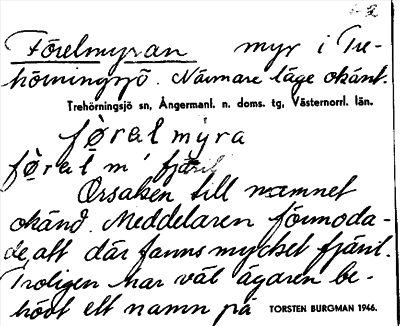 Förelmyran myr i Tre-
hörningsjö. Närmare läge okänt.
Trehörningsjö sn, Ångermanl. n. doms. tg, Västernorrl. län.
fø̀rəlmýra
fø̀rəl m' fjäril
Orsaken till namnet
okänd. Meddelaren förmoda-
de, att där fanns mycket fjäril.
Troligen har väl ägaren be-
hövt ett namn på
TORSTEN BURGMAN 1946.